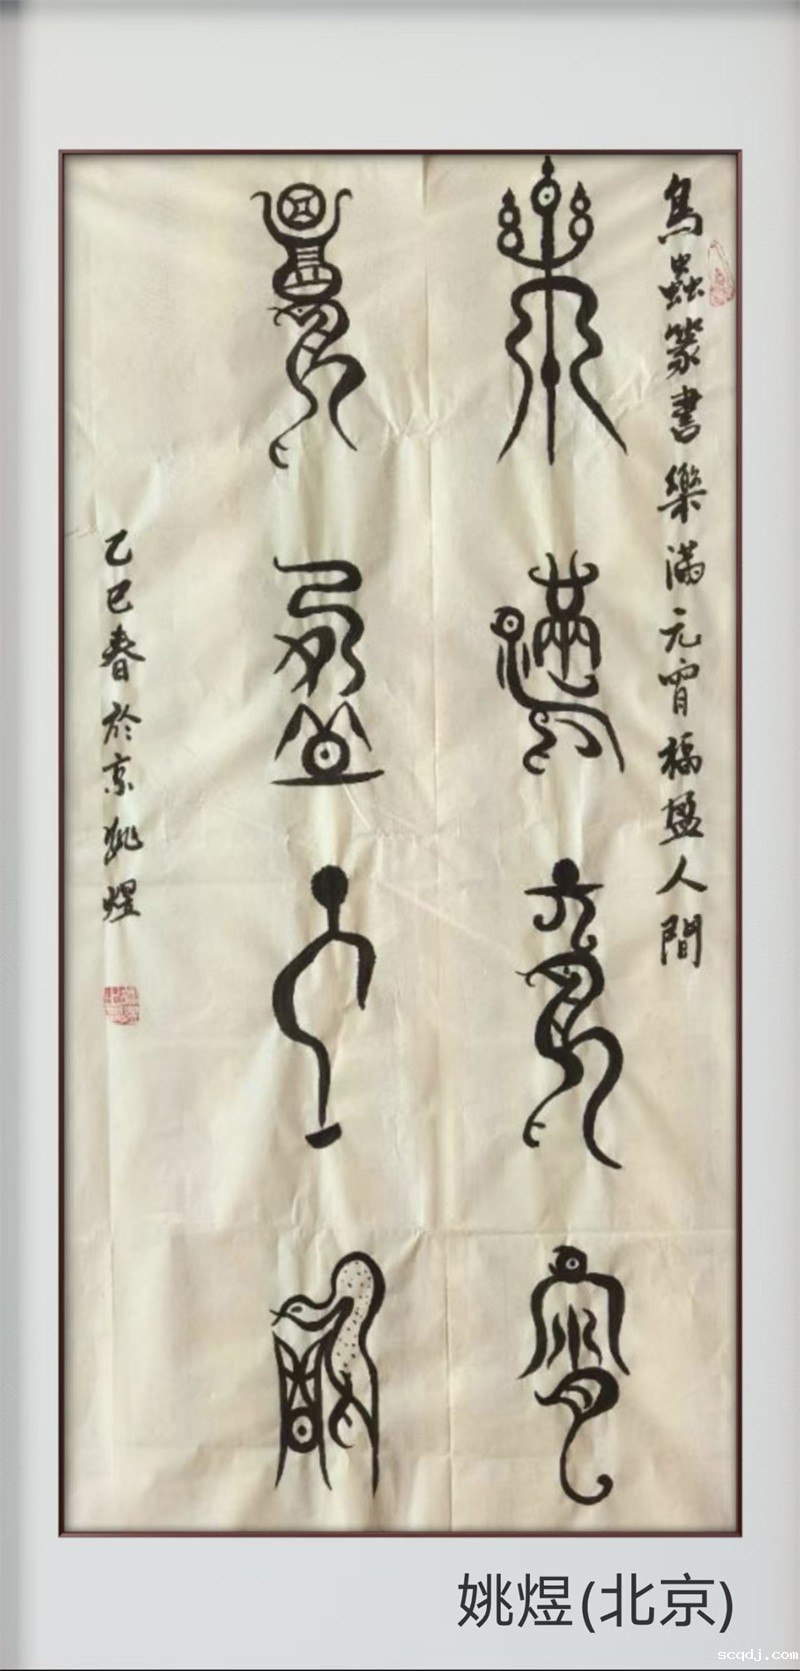 鳥蟲篆書樂滿元宵福盈人間
樂滿元宵
福盈人間
乙巳春於京姚煜
姚煜(北京)
scqdj.com